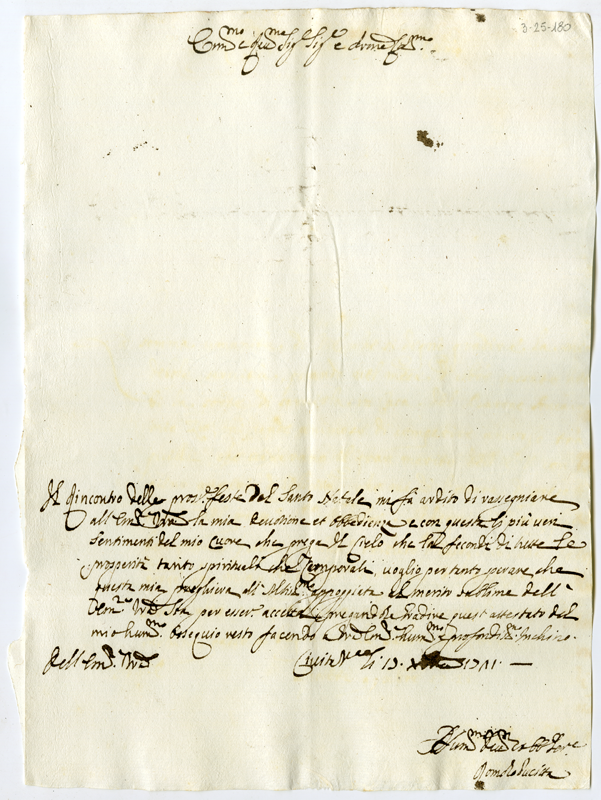 3-25-180
Em.mo e Rev.mo Sig.r Sig.r e
Il rincontro delle pros.e feste del Santo Natale mi fà ardito di rassegniare
all'Em.a V.ra la mia devotione et obbedienza e con questa li più veri
sentimenti del mio cuore che prega il Cielo che la fecondi di tutte le
prosperità tanto spirituali che temporali, voglio pertanto sperare che
questa mia preghiera all' appoggiata al merito sublime dell'
Em.a V.ra sia per esser accetta e pregandola gradire quest'attestato del
mio hum.mo ossequio resto facendo a V.ra Em.a hum.mo e profondis.mo Inchino.
Dell'Em.a V.ra li 13 1711
Hum.mo